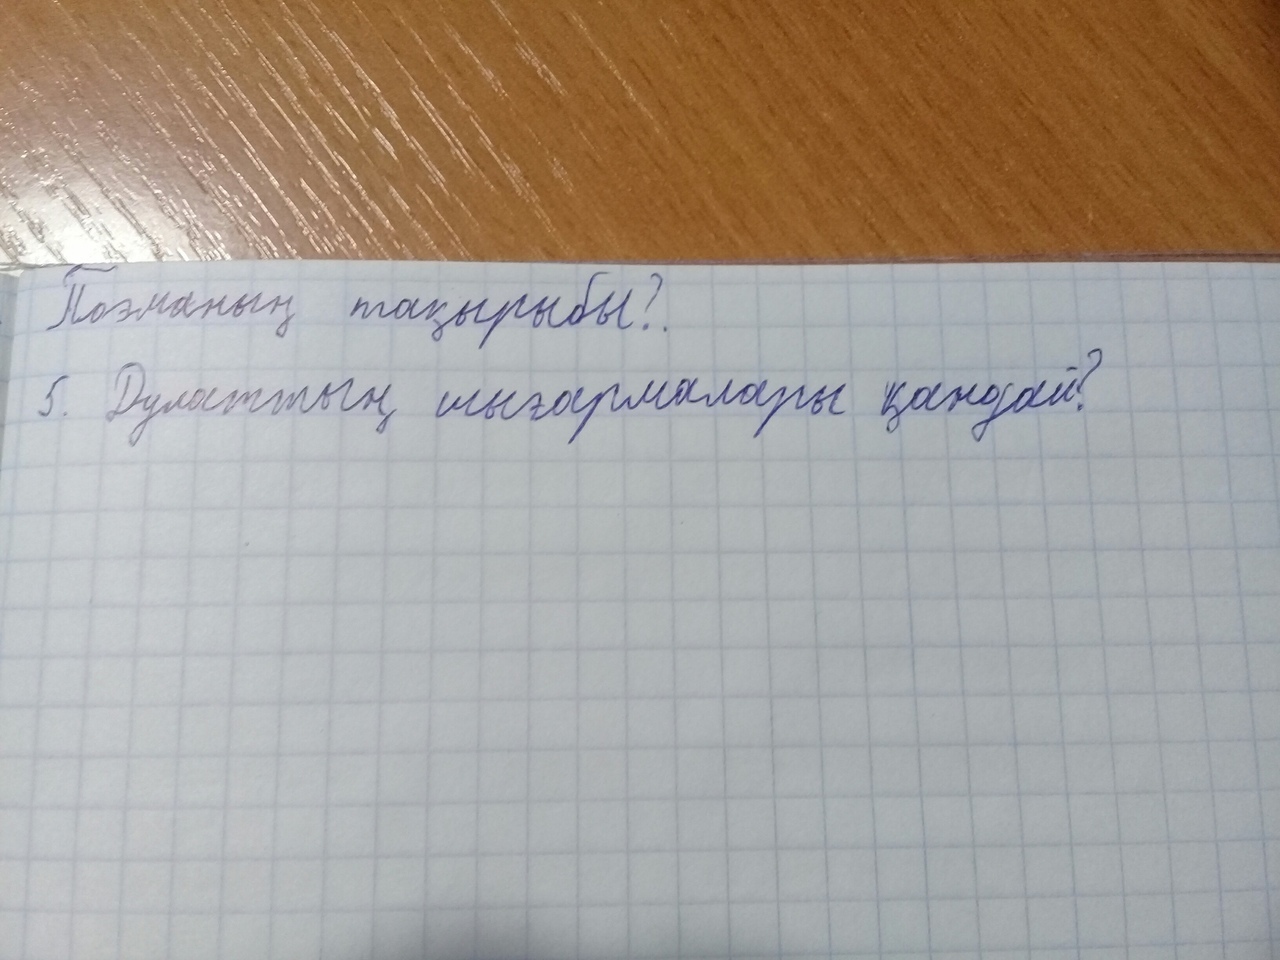 Поэманың тақырыбы?.
5. Дулаттың шығармалары қандай?